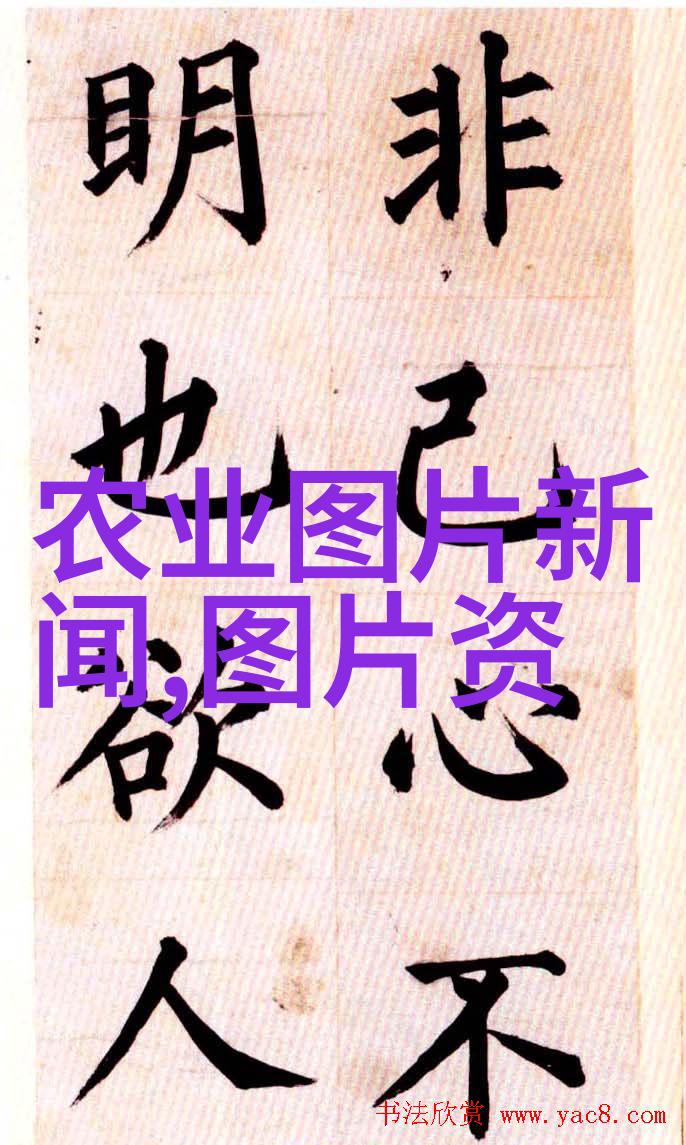 非己心不
眀也欲人
农业图片新
闻,图片资
书法欣赏 www.yac8.com